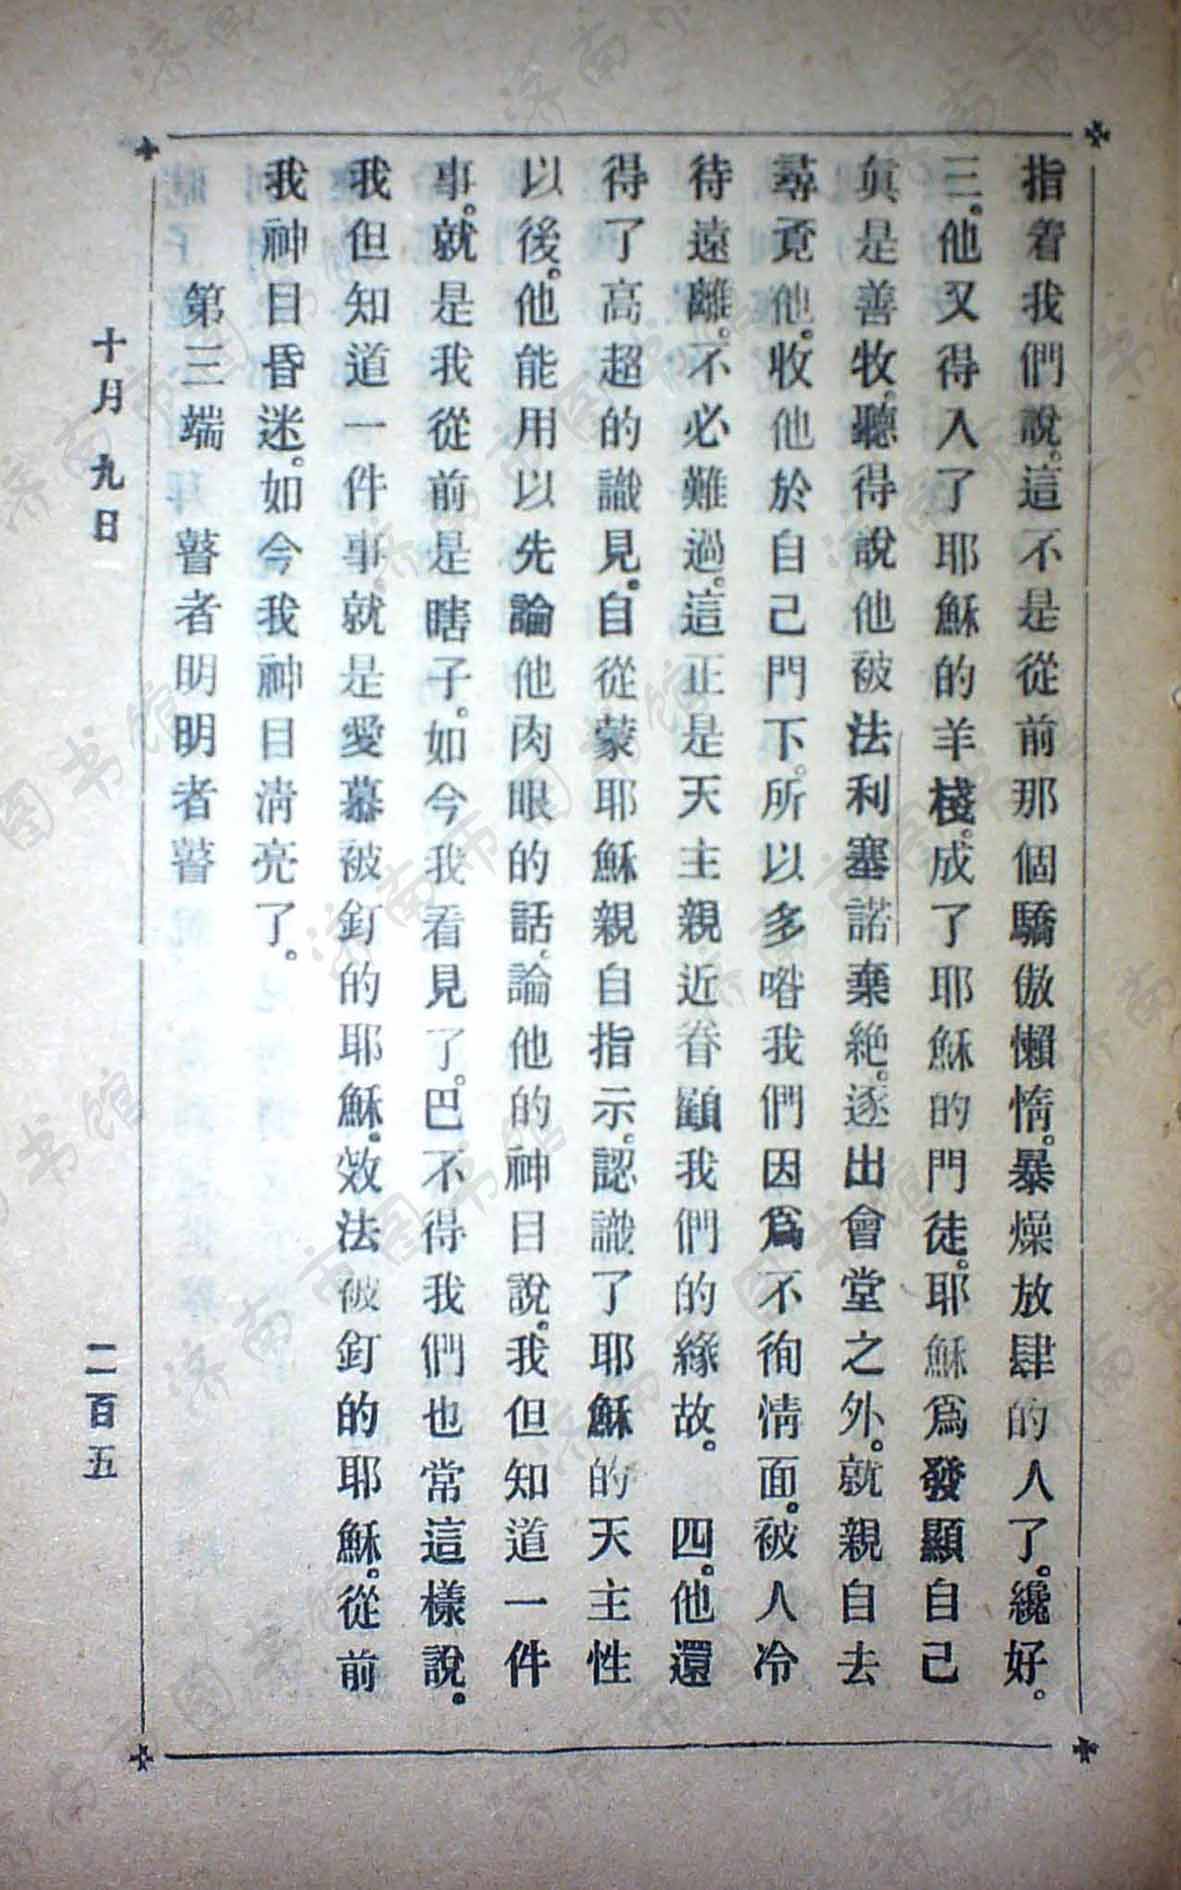 指着我們說。這不是從前那個驕傲懶惰。暴燥放肆的人了。纔好。
三。他又得入了耶穌的羊棧。成了耶穌的門徒。耶穌爲發顯自己
眞是善牧。聽得說他被法利塞諾棄絕。逐出會堂之外。就親自去
尋覓他。收他於自己門下。所以多喒我們因爲不徇淸面。被人冷
待遠離。不必難過。這正是天主親近眷顧我們的緣故。 四。他還
得了高超的識見。自從蒙耶穌親自指示。認識了耶穌的天主性
以後。他能用以先論他肉眼的話。論他的神目說。我但知道一件
事。就是我從前是瞎子。如今我看見了。巴不得我們也常這樣說。
我但知道一件事就是愛慕被釘的耶穌。效法被釘的耶穌。從前
我神目昏迷。如今我神目淸亮了。
第三端 瞽者明明者瞽
十月九日 二百五
济南市图书馆